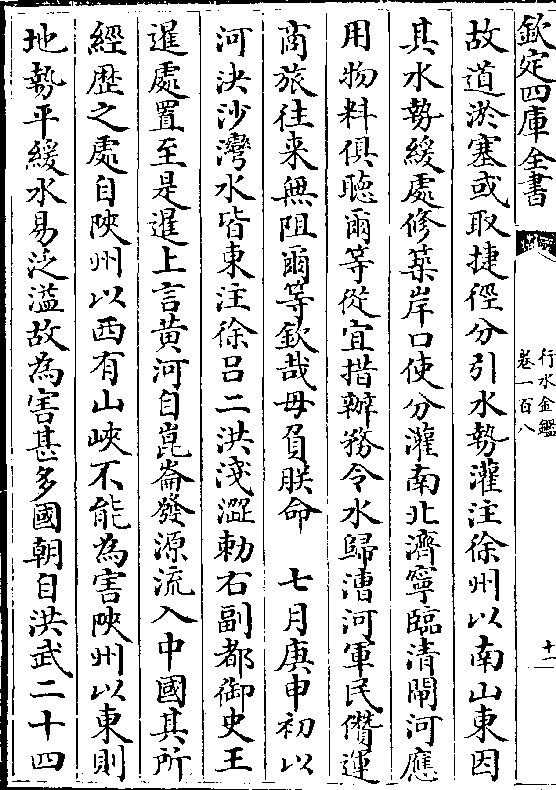 欽定四庫全書
行水金鑑
卷一百八
十一
故道淤塞或取捷徑分引水勢灌注徐州以南山東因
其水勢緩處修築岸口使分灌南北濟寧臨清閘河應
用物料俱聽爾等從宜措辦務令水歸漕河軍民儹運
商旅往来無阻爾等欽哉毋負朕命　七月庚申初以
河決沙灣水皆東注徐吕二洪淺澀勅右副都御史王
暹處置至是暹上言黄河自崑崙發源流入中國其所
經歴之處自陜州以西有山峽不能為害陜州以東則
地勢平緩水易泛溢故為害甚多國朝自洪武二十四